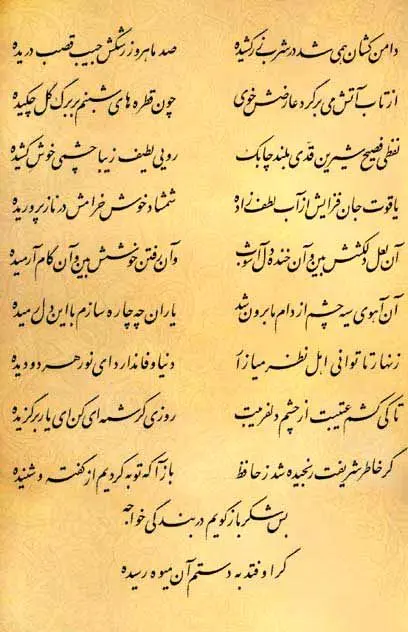 دامن کشان همی شد در شرب زرکشیده صد ماهرو ز رشکش جیب قصب دریده
از تاب آتش می بر گرد عارضش خوی چون قطره های شبنم بر برگ گل چکیده
لفظی فصیح شیرین قدی بلند چابک رویی لطیف زیبا چشمی خوش کشیده
یاقوت جان فزایش از آب لطف زاده شمشاد خوش خرامش در ناز پروریده
آن لعل دلکشش بین وآن خنده دل آشوب وآن رفتن خوشش بین وآن گام آرمیده
آن آهوی سیه چشم از دام ما برون شد یاران چه چاره سازم با این دل رمیده
زنهار تا توانی اهل نظر میازار دنیا وفا ندارد ای نور هر دو دیده
تا کی کشم عتیبت از چشم دلفریبت روزی کرشمه ای کن ای یار برگزیده
گر خاطر شریفت رنجیده شد ز حافظ بازآ که توبه کردیم از گفته و شنیده
بس شکر بازگویم در بندگی خواجه
گر اوفتد به دستم آن میوه رسیده